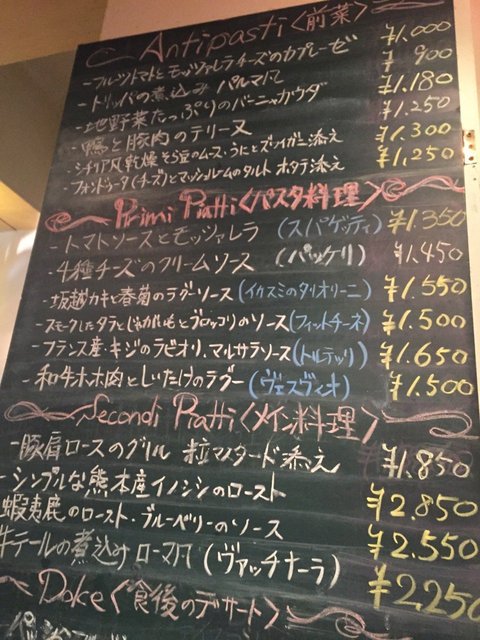 Antipasti〈前菜〉
-フルーツトマトとモッツァレラチーズのカプレーゼ ¥1.000
-トリッパの煮込み パルマ風 ¥900
-地野菜たっぷりのバーニャカウダ ¥1.180
-鴨と豚肉のテリーヌ ¥1.250
-シチリア風乾燥そら豆のムース・うにとズワイガニ添え ¥1.300
-フォンドゥータ(チーズ)とマッシュルームのタルト ホタテ添え ¥1.250
Primi Piatti〈パスタ料理〉
-トマトソースとモッツァレラ (スパゲッティ) ¥1.350
-4種チーズのクリームソース (パッケリ) ¥1.450
-坂越カキと春菊のラグーソース(イカスミのタリオリーニ) ¥1.550
-スモークしたタラとじゃがいもとブロッコリのソース(フィットチーネ) ¥1.500
-フランス産・キジのラビオリ、マルサラソース(トルテッリ) ¥1.650
-和牛ホホ肉としいたけのラグー (ヴェスヴィオ) ¥1.500
Secondi Piatti〈メイン料理〉
-豚肩ロースのグリル 粒マスタード添え ¥1.850
-シンプルな熊本産イノシシのロースト ¥2.850
蝦夷鹿のロースト・ブルーベリーのソース ¥2.550
牛テールの煮込み ローマ風 (ヴァッチナーラ) ¥2250
Dolce〈食後のデザート〉